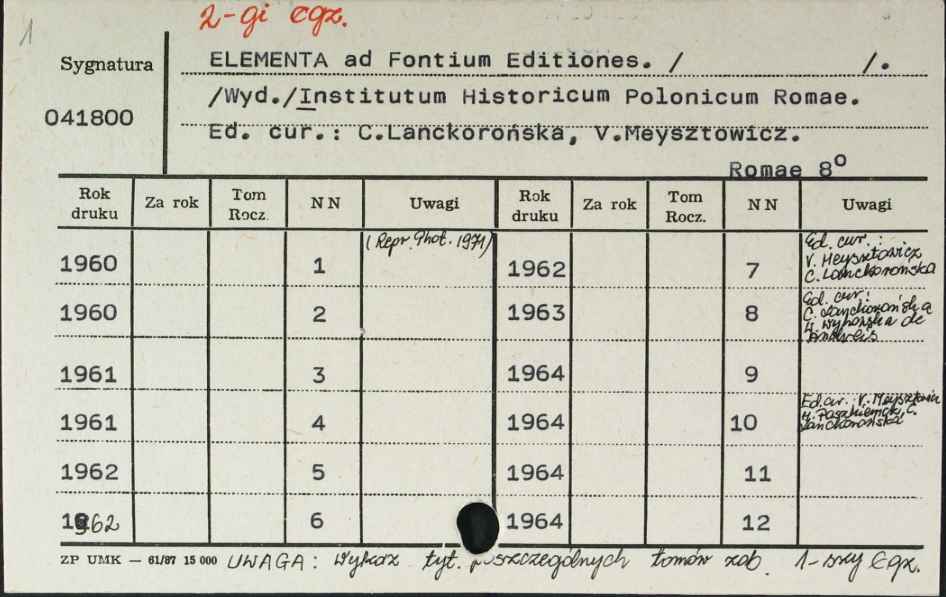 1
2-gi egz.
Sygnatura
041800
ELEMENTA ad Fontium Editiones. / /.
/Wyd./Institutum Historicum Polonicum Romae.
Ed. cur.: C.Lanckorońska, V.Meysztowicz.
Romae 8o
Rok druku Za rok Tom Rocz. NN Uwagi Rok druku Za rok Tom Rocz. NN Uwagi
1960 1 (Repr. Phot. 1971) 1962 7 Ed. cur.: V. Meysztowicz C. Lanckorońska
1960 2 1963 8 Ed. cur: C. Lanckorońska
1961 3 1964 9
1961 4 1964 10 Ed. cur. V. Meysztowicz C. Lanckorońska
1962 5 1964 11
1962 6 1964 12
ZP UMK — 61/87 15 000 UWAGA: Wykaz tyt. poszczególnych tomów zob. 1-szy Egz.